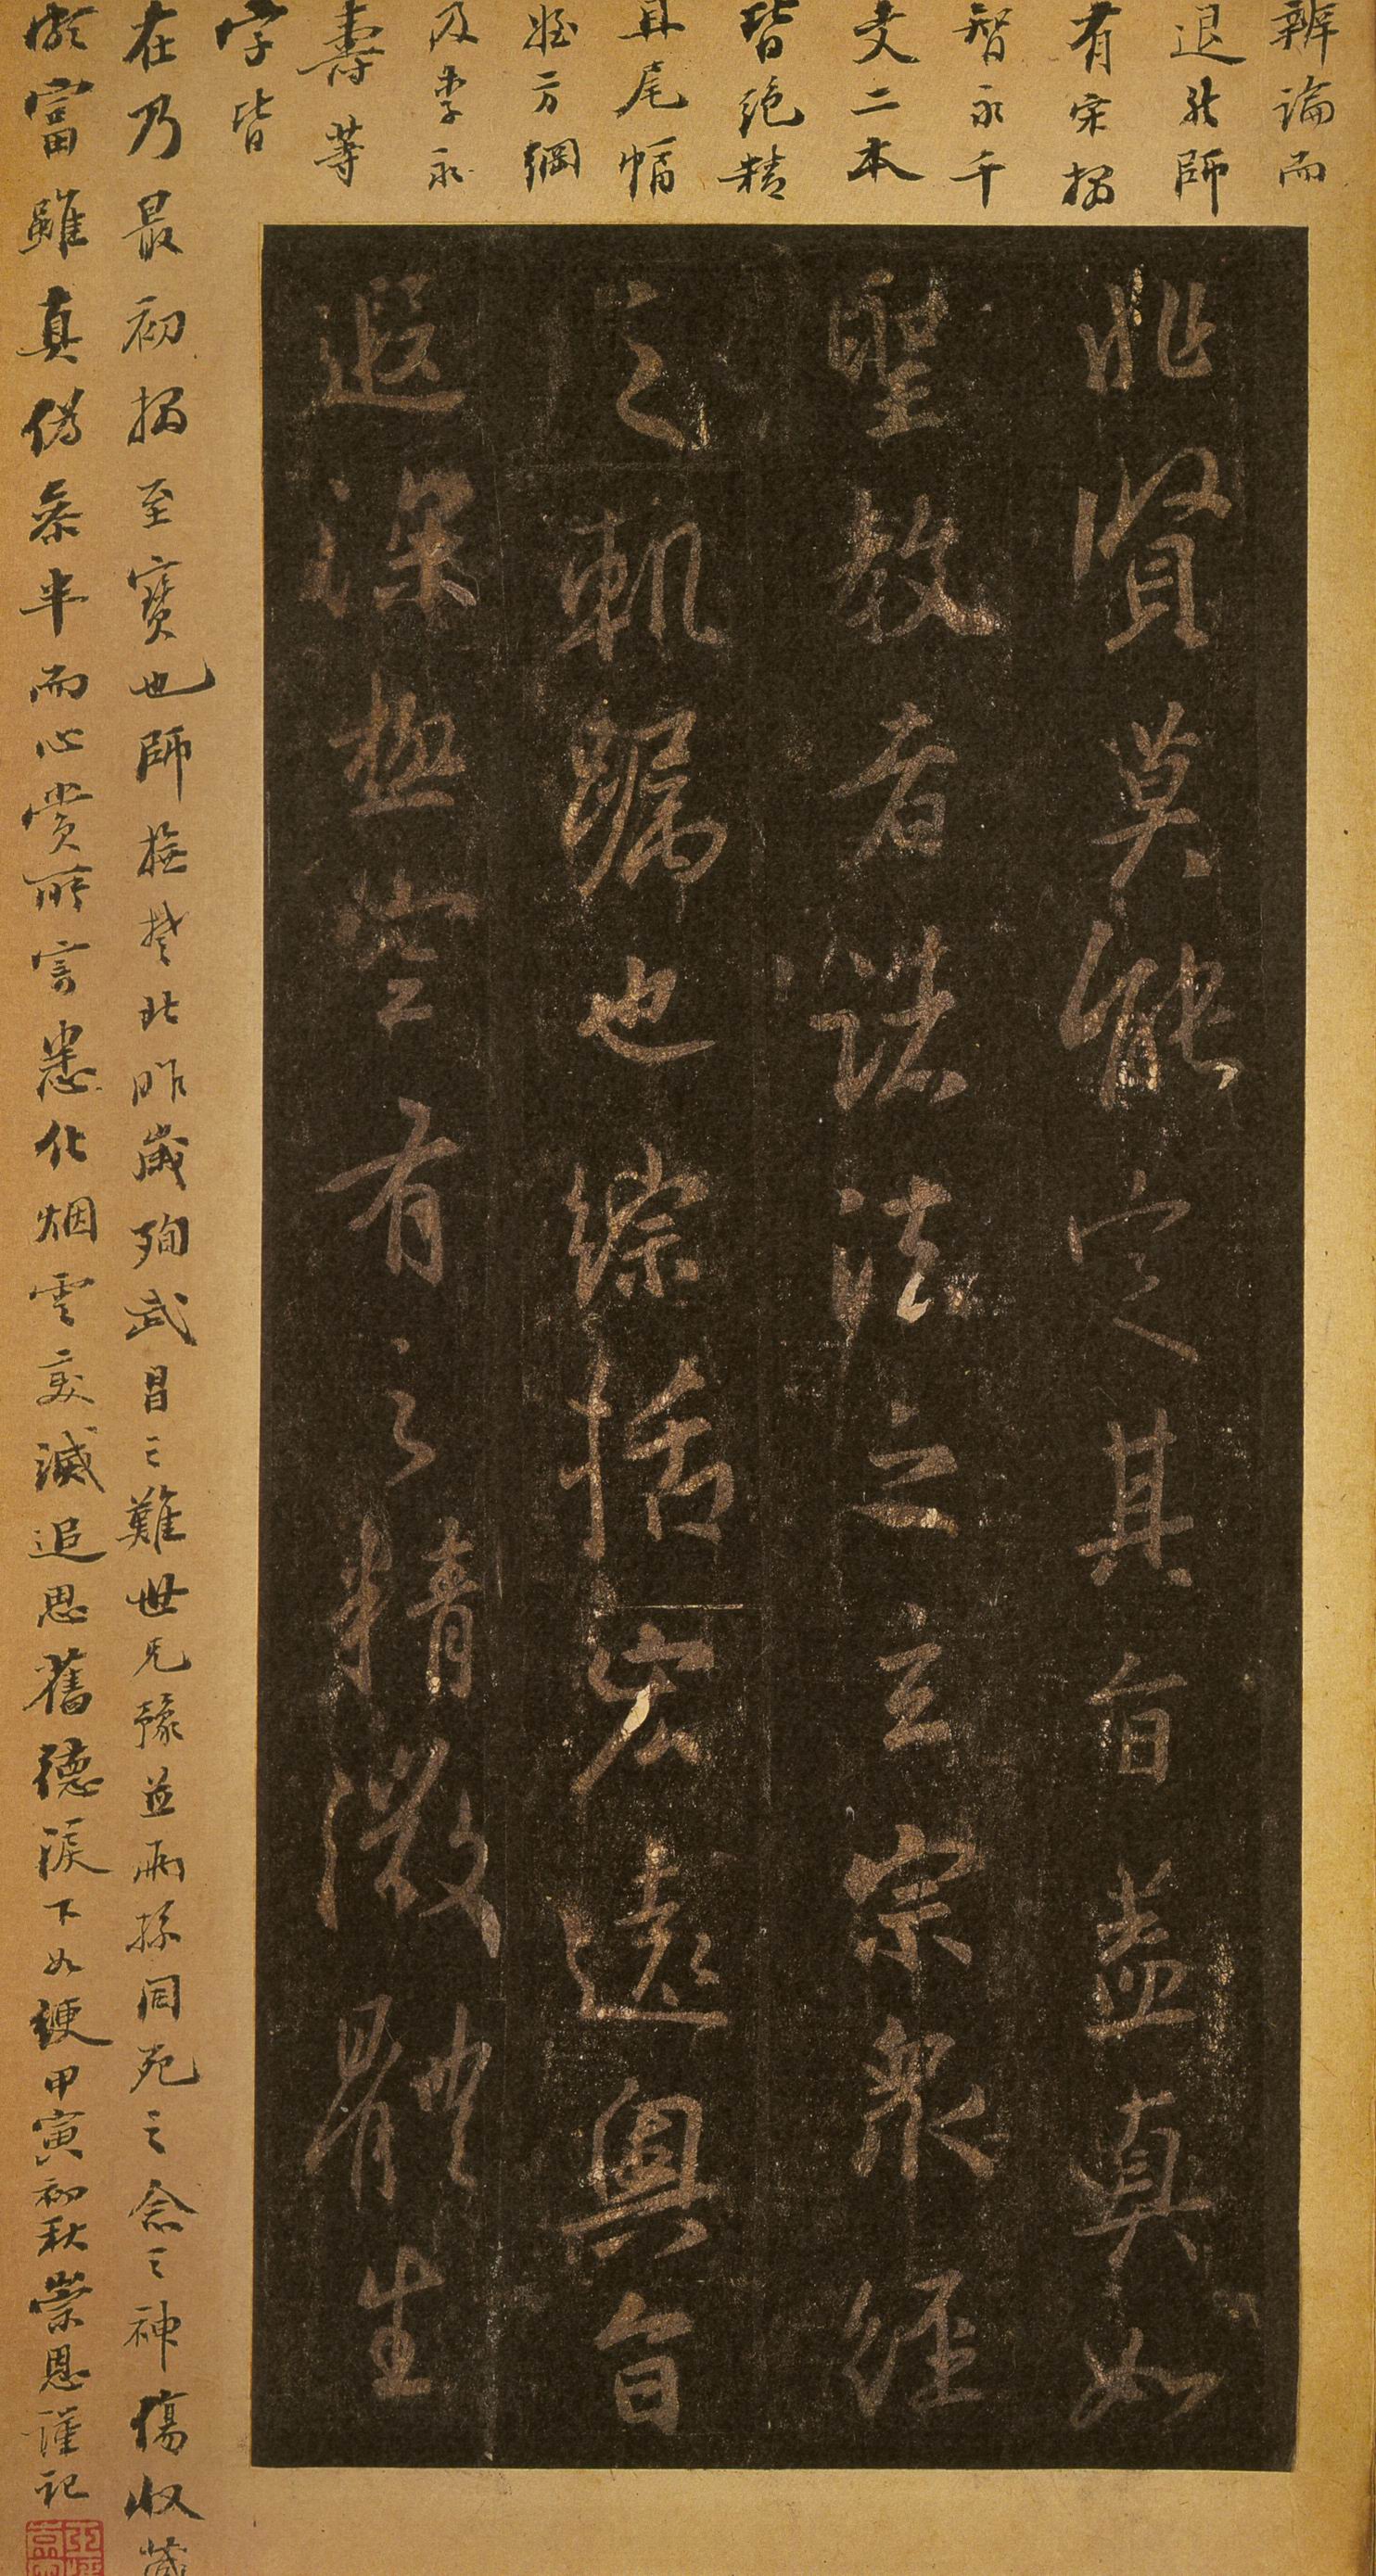 非賢莫能定其旨蓋真如
聖教者諸法之玄宗衆經
之軌躅也綜括宏遠奧旨
遐深極空有之精微體生
辨論而
退師
有宋搨
智永千
文二本
皆絶精
其尾幅
方綱
及李永
壽等
字皆
在乃最初搨至寶也師撫楚北昨歲殉武昌之難世兄豫並兩孫同死之念之神傷收藏
頗富雖真偽參半而心賞所寄悉化烟雲變滅追思舊德淚下如綆甲寅初秋崇恩謹記